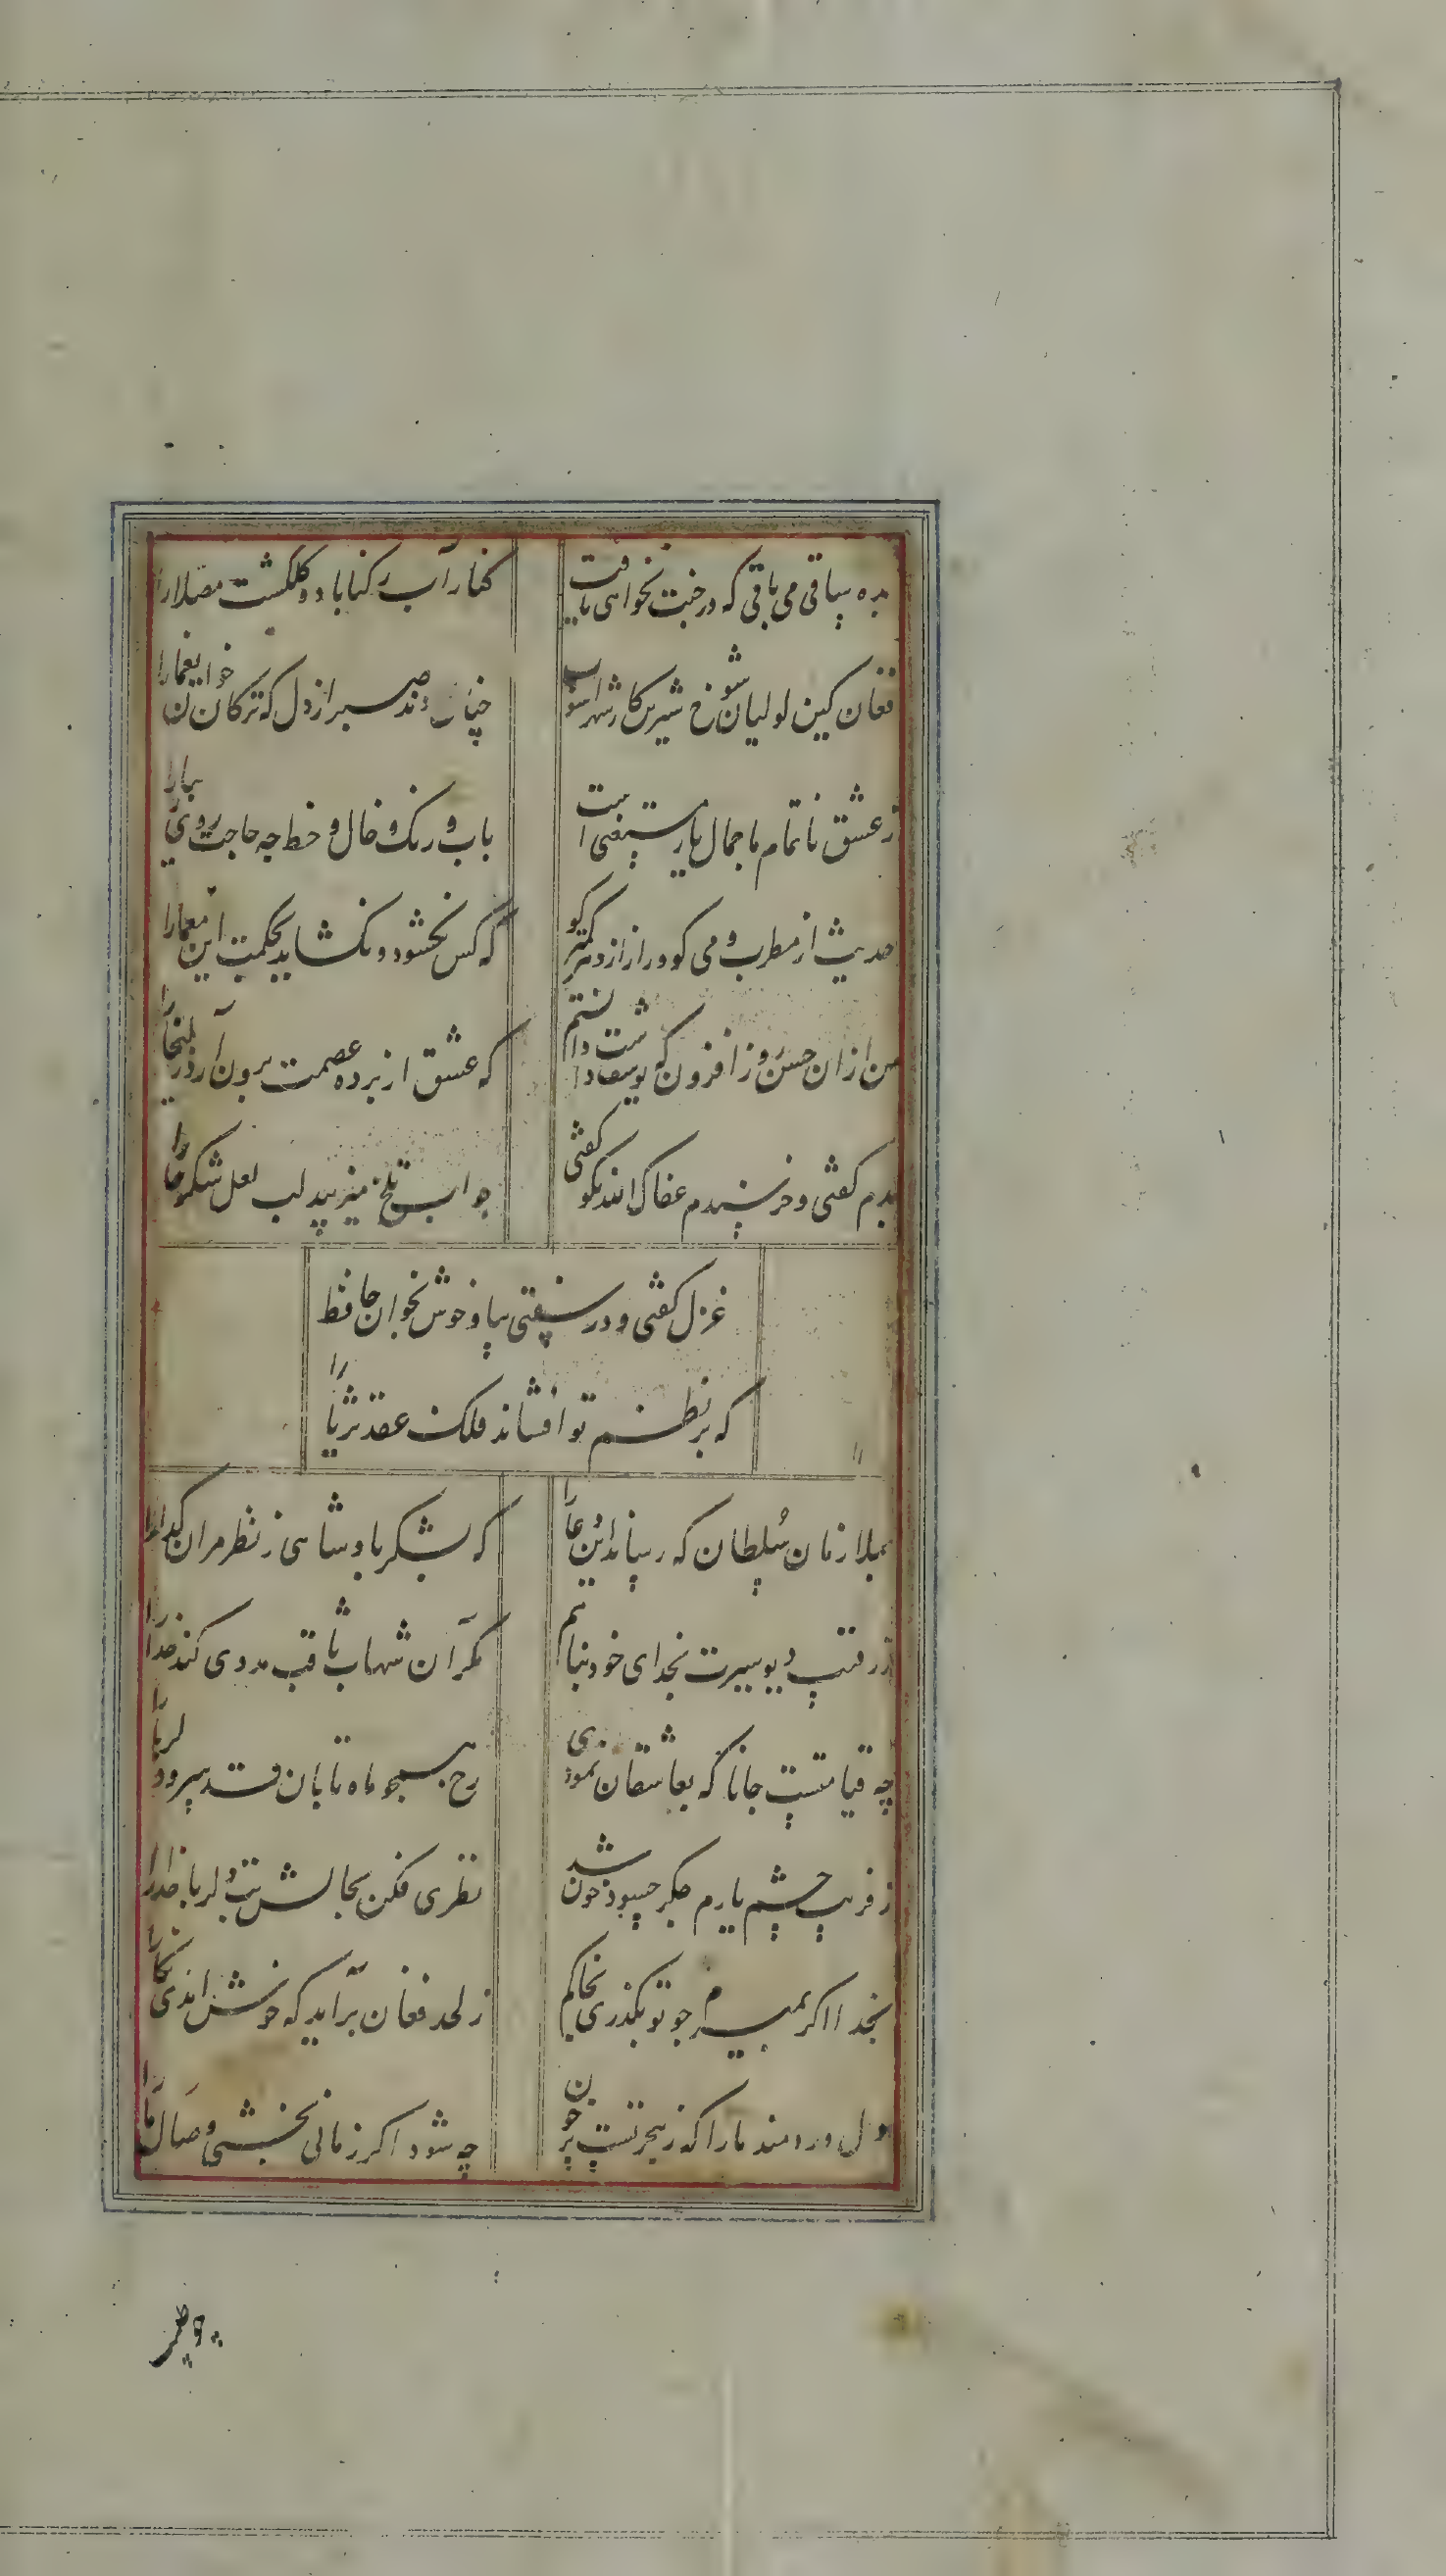 بده ساقی می باقی که در جنت نخواهی یافت
کنار آب رکناباد و گلگشت مصلا را
فغان کین لولیان شوخ شیرین کار شهر اشوب
چنان بردند صبر از دل که ترکان خوان یغما را
ز عشق ناتمام ما جمال یار مستغنی است
باب و رنگ و خال و خط چه حاجت روی زیبا را
حدیث از مطرب و می کو و راز از دهر کمتر کو
که کس نگشود و نگشاید بحکمت این معما را
من ازان حسن روز افزون که یوسف داشت دانستم
که عشق از پرده عصمت برون آرد زلیخا را
بدم گفتی و خرسندم عفاک الله نکو گفتی
جواب تلخ میزیبد لب لعل شکرخا را
غزل گفتی و در سفتی بیا و خوش بخوان حافظ
که بر نظم تو افشاند فلک عقد ثریا را
بملازمان سلطان که رساند این دعا را
که بشکر پادشاهی ز نظر مران گدا را
ز رقیب دیو سیرت بخدای خود پناهم
مگر آن شهاب ثاقب مددی کند خدا را
چه قیامتست جانا که بعاشقان نمودی
رخ همچو ماه تابان قد سرو دلربا را
ز فریب چشم یارم جگر حسود خون شد
نظری فکن بحالش بت دلربا خدا را
بخدا اگر بمیرم چو تو بگذری بخاکم
ز لحد فغان برآید که خوش امدی نگارا
دل دردمند ما را که ز هجر تست پر خون
چه شود اگر زمانی بخشی وصال ما را